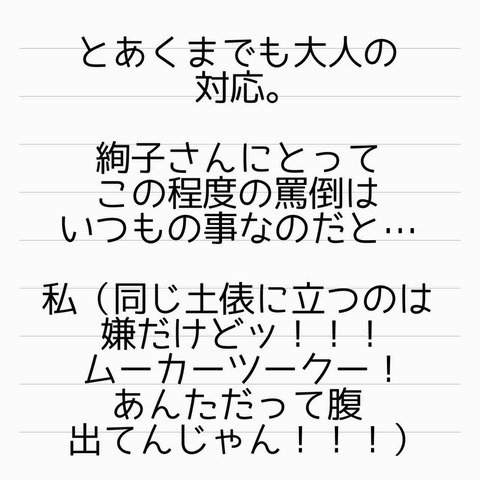 とあくまでも大人の
対応。
絢子さんにとって
この程度の罵倒は
いつもの事なのだと…
私（同じ土俵に立つのは
嫌だけどッ！！！
ムーカーツークー！
あんただって腹
出てんじゃん！！！）